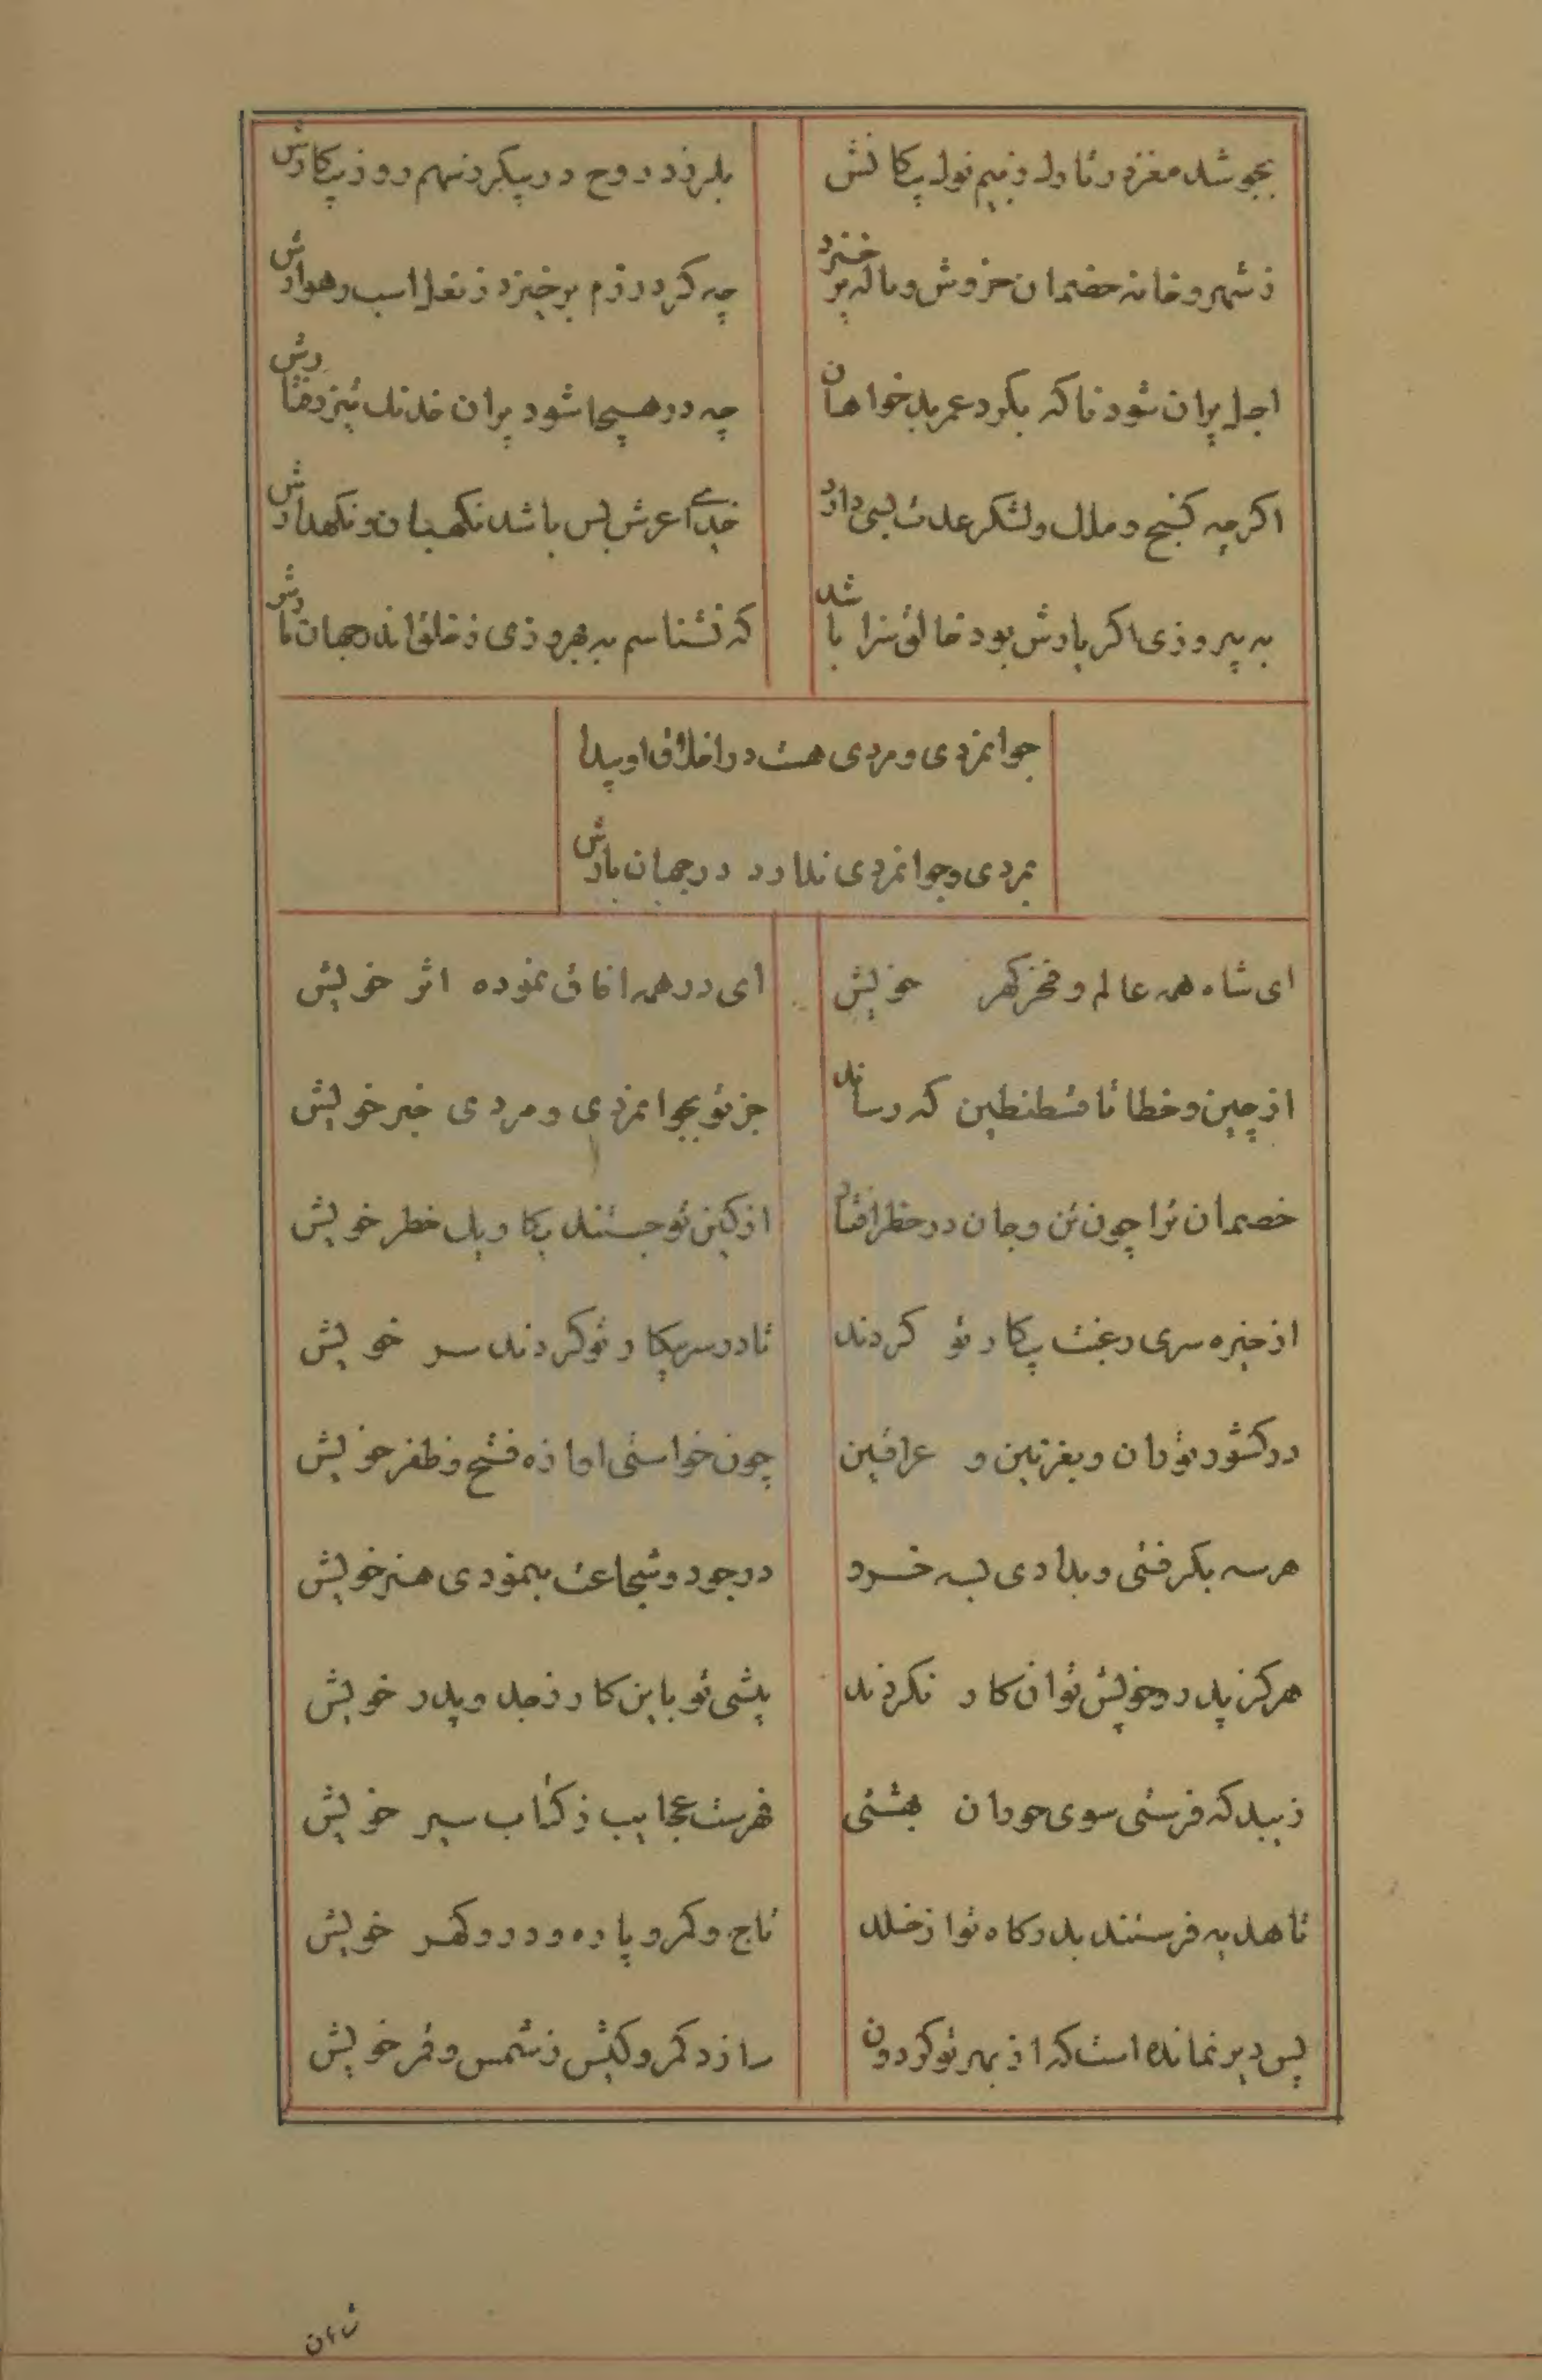 بجوشد مغز در تارک ز بیم نوک پیکانش
بلرزد روح در پیکر ز سهم روز پیکارش
ز شهر و خانه خصمان خروش و ناله برخیزد
چه گرد رزم برخیزد ز نعل اسب رهوارش
اجل پران شود ناگه بگرد عمر بدخواهان
چه در هیجا شود پران خدنگ تیز رفتارش
اگرچه گنج و ملک و لشکر عدت بسی دارد
خدای عرش بس باشد نگهبان و نگهدارش
به پیروزی اگر یارش بود خالق سزا باشد
که نشناسم به بهروزی ز خلق اندر جهان یارش
جوانمردی و مردی هست در اخلاق او پیدا
بمردی و جوانمردی ندارد در جهان یارش
ای شاه همه عالم و فخر گهر خویش
ای در همه افاق نموده اثر خویش
از چین و خطا تا قسطنطین که رساند
جز تو بجوانمردی و مردی خبر خویش
خصمان ترا چون تن و جان در خطر افتاد
از کین تو جستند پیکار خطر خویش
از خیره سری رغبت پیکار تو کردند
تا در سر پیکار تو کردند سر خویش
در کشور توران و بغزنین و عراقین
چون خواستی اوازه فتح و ظفر خویش
هر سه بگرفتی و بدادی بسه خسرو
در جود و شجاعت بنمودی هنر خویش
هرگز پدر و خویش تو ان کار نکردند
بیشی تو باین کار ز جد و پدر خویش
زیبد که فرستی سوی حوران بهشتی
فهرست عجایب ز کتاب سیر خویش
تا هدیه فرستند بدرگاه تو از خلد
تاج و کمر و یاره و در و گهر خویش
بس دیر نمانده است که از بهر تو گردون
سازد کمر و کیش ز شمس و قمر خویش